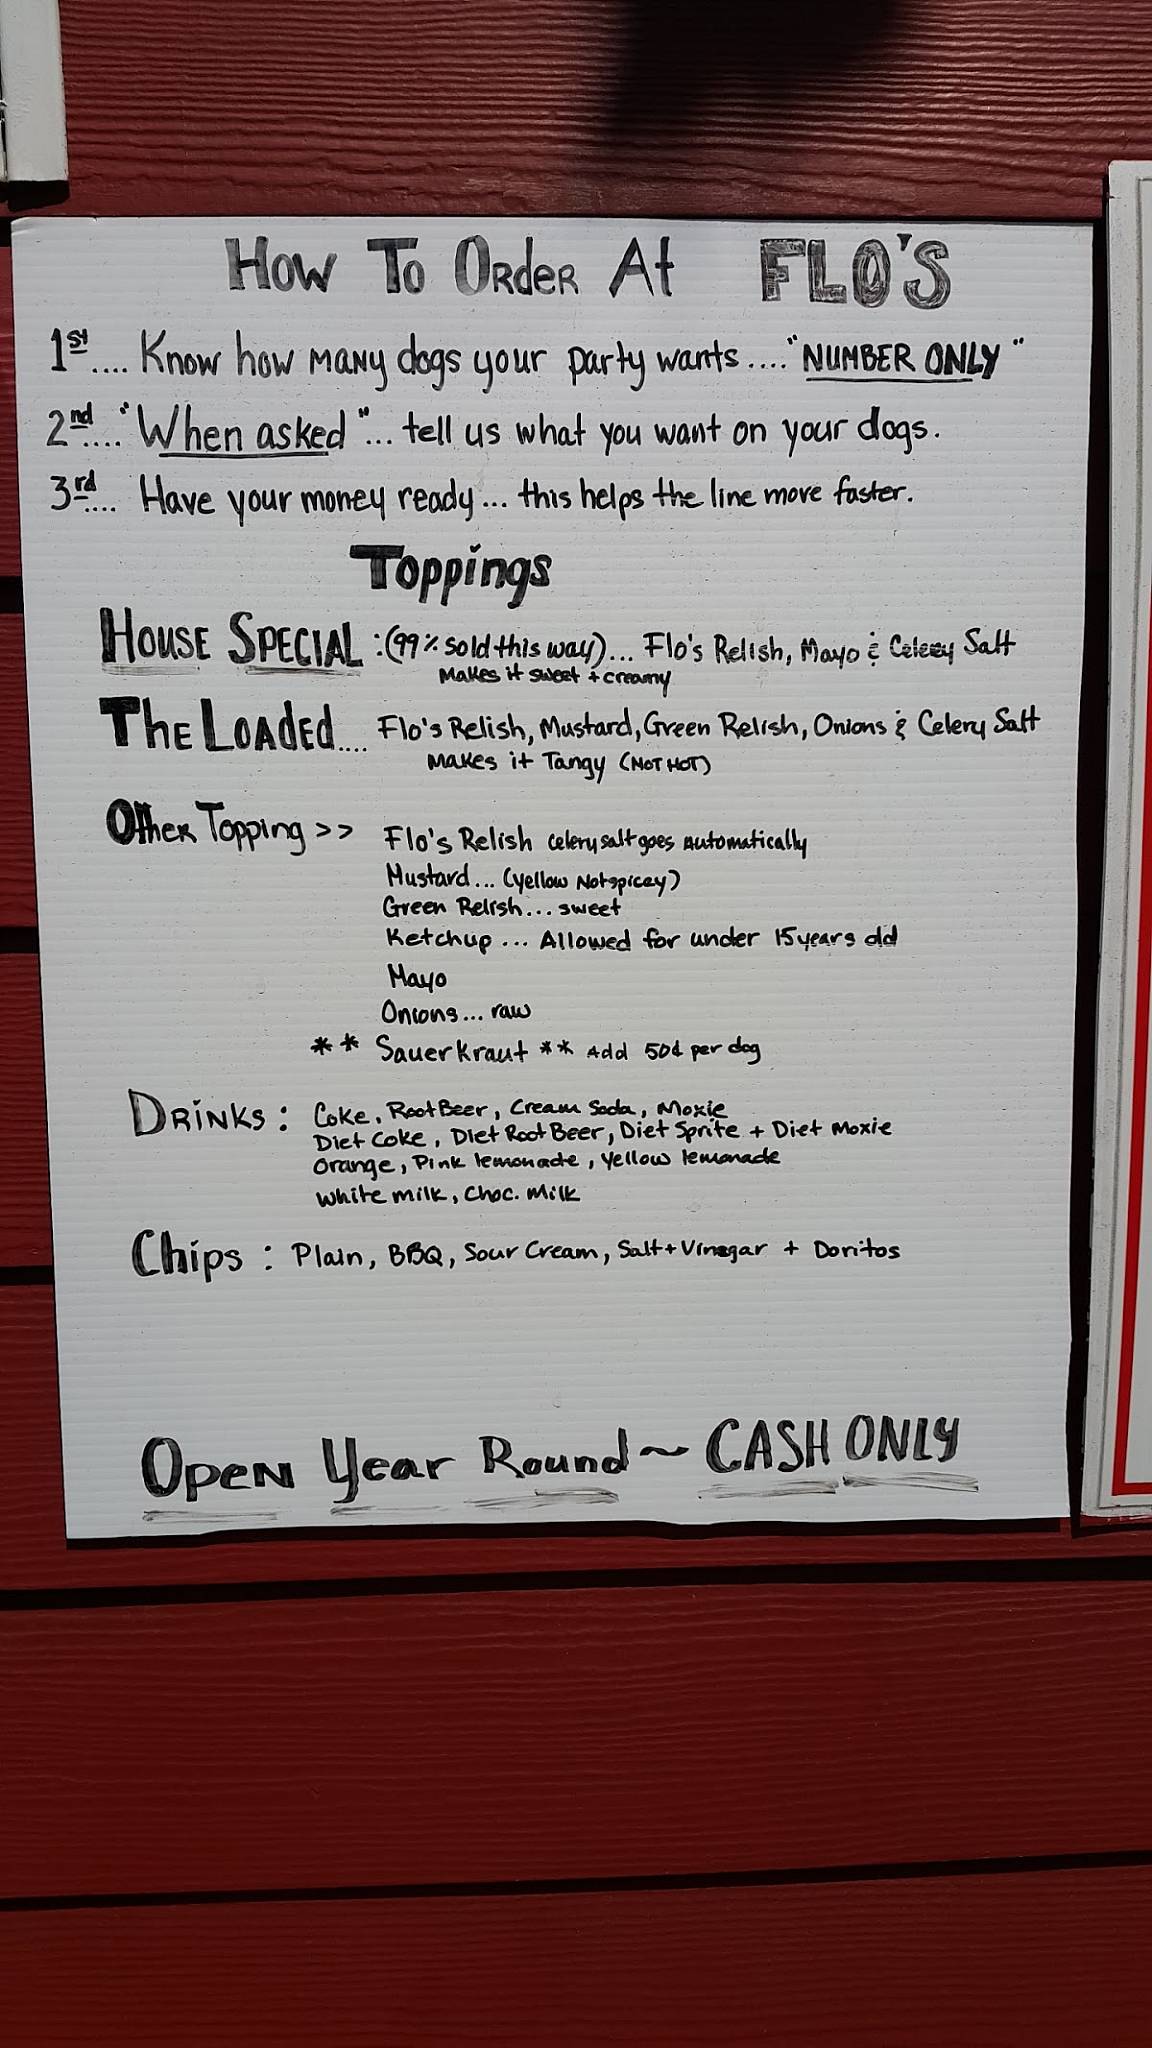 How To Order At FLO'S
1st.... Know how many dogs your party wants...."NUMBER ONLY"
2nd.... "When asked"... tell us what you want on your dogs.
3rd.... Have your money ready... this helps the line move faster.
Toppings
HOUSE SPECIAL :(99% sold this way)... Flo's Relish, Mayo & Celery Salt
makes it sweet + creamy
The Loaded.... Flo's Relish, Mustard, Green Relish, Onions & Celery Salt
makes it Tangy (NOT HOT)
Other Topping >> Flo's Relish celery salt goes automatically
Mustard... (yellow Not spicey)
Green Relish... sweet
Ketchup ... Allowed for under 15 years old
Mayo
Onions... raw
** Sauerkraut ** Add 50¢ per dog
Drinks : Coke, Root Beer, Cream Soda, Moxie
Diet Coke, Diet Root Beer, Diet Sprite + Diet Moxie
Orange, Pink lemonade, yellow lemonade
White milk, Choc. Milk
Chips : Plain, BBQ, Sour Cream, Salt + Vinegar + Doritos
Open Year Round ~ CASH ONLY